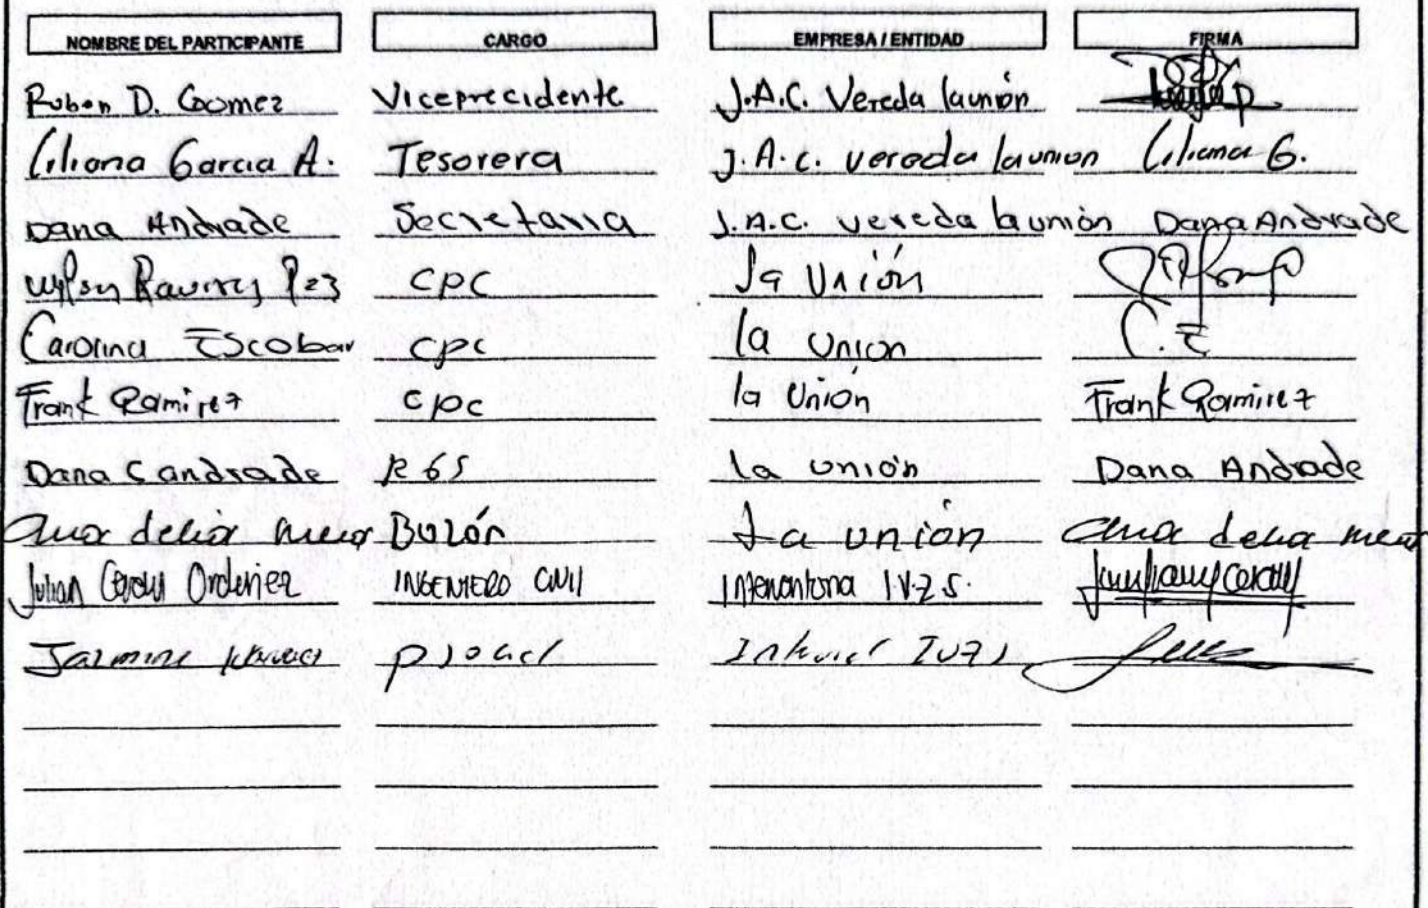 NOMBRE DEL PARTICIPANTE CARGO EMPRESA / ENTIDAD FIRMA
Ruben D. Goomez Viceprecidente J.A.C. Vereda launión
Liliana Garcia A. Tesorera J.A.C. vereda launion Liliana G.
Dana Andrade Secretaria J.A.C. vereda launión Dana Andrade
Wilson CPC La Unión
Carolina Escobar CPC la Union C.E
Frank Ramirez CPC la Unión Frank Ramirez
Dana C andrade la unión Dana Andrade
ana delia Buzón La unión ana delia
Julian Ordoñez INGENIERO CIVIL